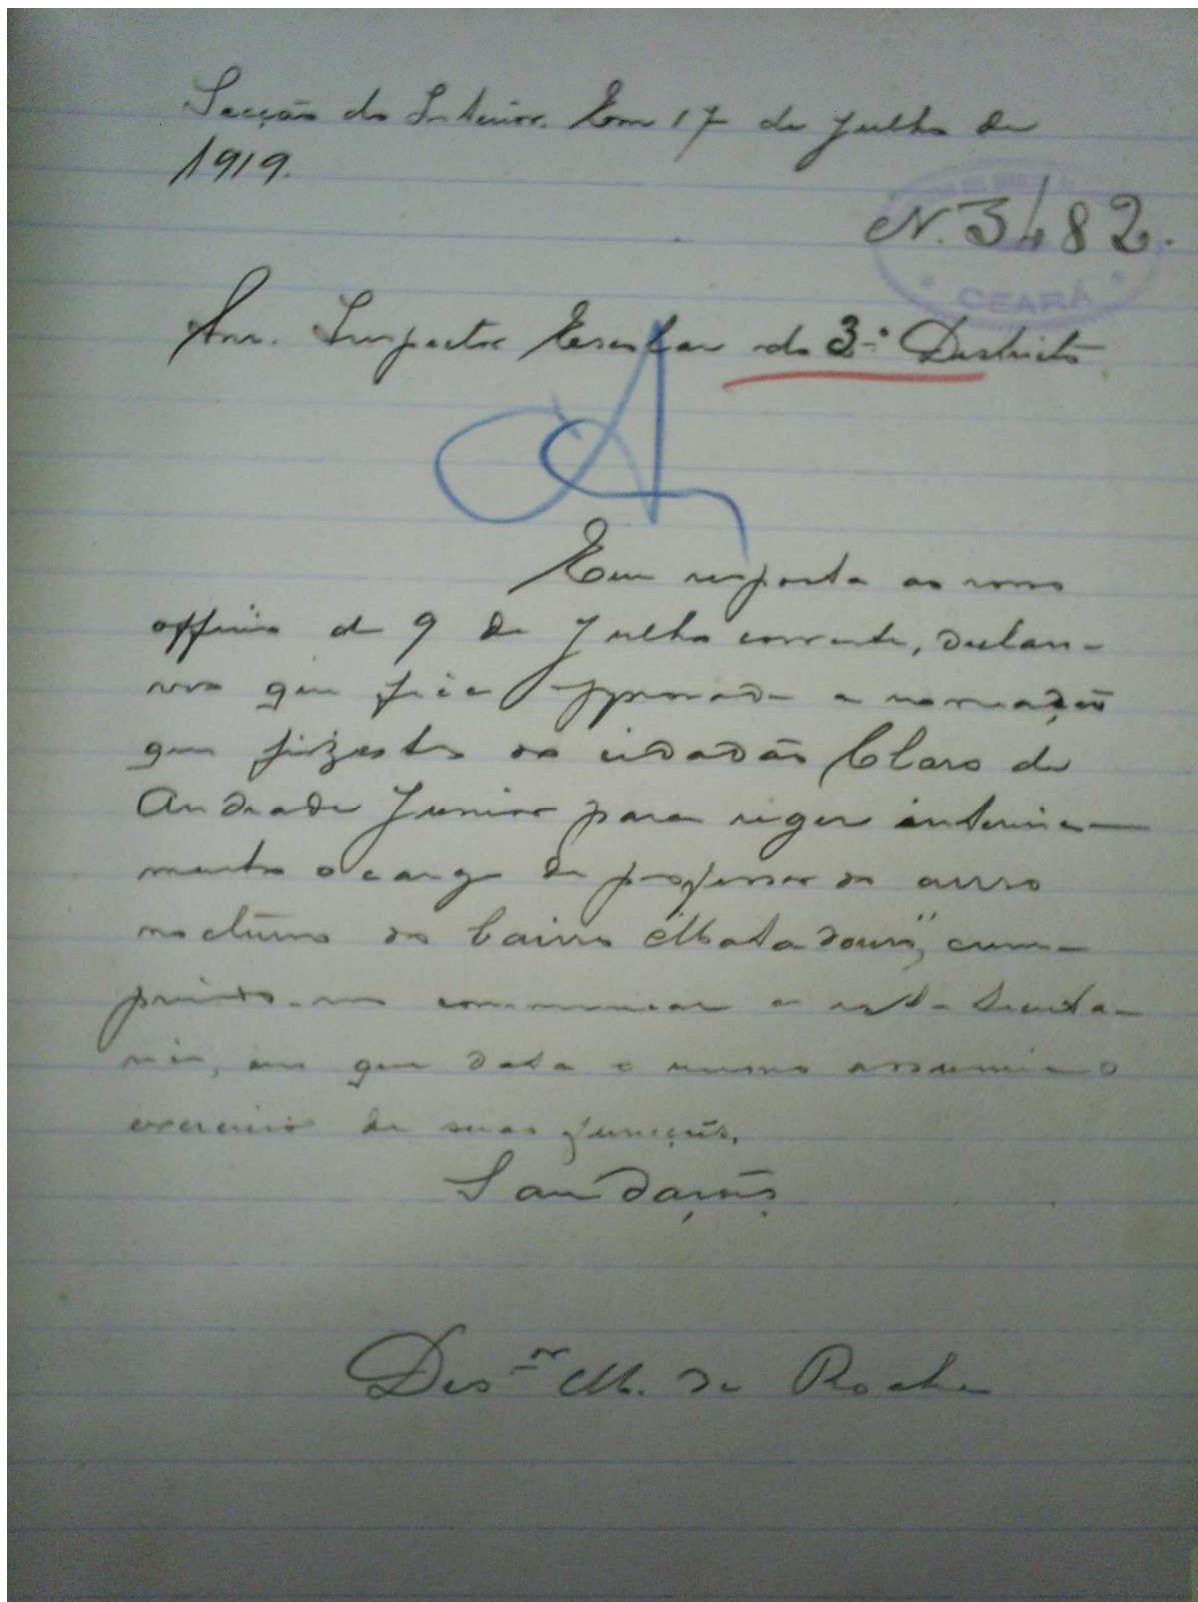 Secção do Interior. Em 17 de Julho de
1919.
N. 3482.
CEARÁ
Snr. Inspector Escolar do 3.º Districto
Em resposta ao vosso
officio de 9 de Julho corrente, declaro-
vos que fica approvada a nomeação
que fizestes do cidadão Claro de
Andrade Junior para reger interina-
mente o cargo de professor do curso
nocturno do bairro "Matadouro", cum-
prindo-vos communicar a esta Secreta-
ria, em que data o mesmo assumiu o
exercicio de suas funcções.
Saudações
Des.or M. da Rocha